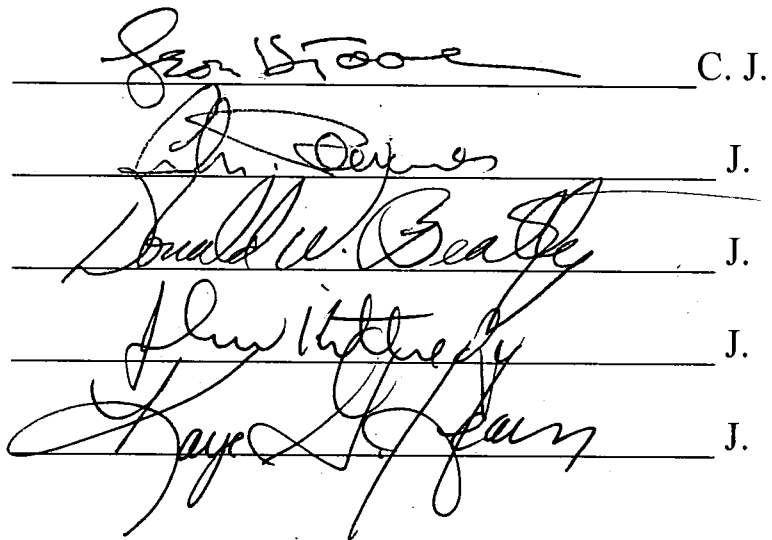 Jean H. Toal C. J.
J.
Donald W. Beatty J.
John Kittredge J.
Kaye G. Hearn J.